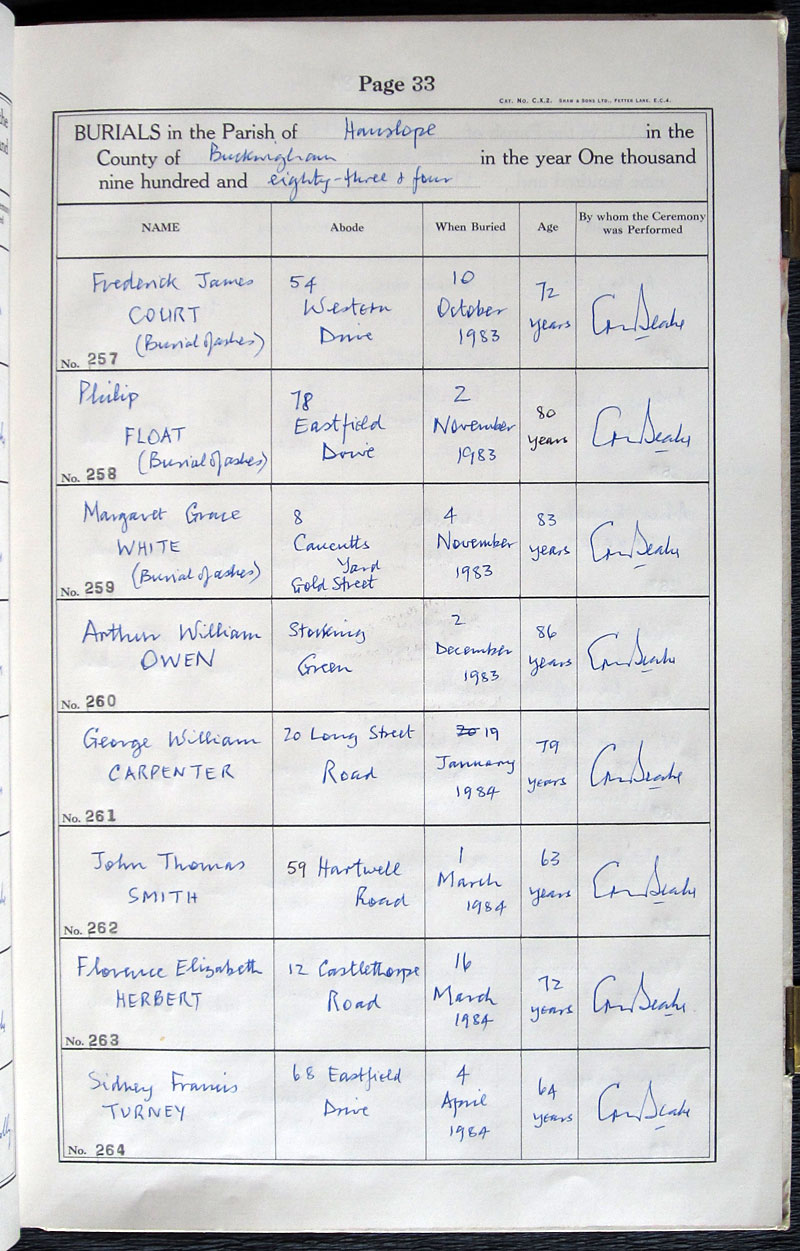 Page 33
CAT. NO. C.X.2. SHAW & SONS LTD., FETTER LANE, E.C.4.
BURIALS in the Parish of Hanslope in the
County of Buckingham in the year One thousand
nine hundred and eighty-three & four
NAME Abode When Buried Age By whom the Ceremony was Performed
Frederick James
COURT
(Burial of ashes)
No. 257
54
Western
Drive
10
October
1983
72
years
Philip
FLOAT
(Burial of ashes)
No. 258
78
Eastfield
Drive
2
November
1983
80
years
Margaret Grace
WHITE
(Burial of ashes)
No. 259
8
Caucutts
Yard
Gold Street
4
November
1983
83
years
Arthur William
OWEN
No. 260
Stocking
Green
2
December
1983
86
years
George William
CARPENTER
No. 261
20 Long Street
Road
20 19
January
1984
79
years
John Thomas
SMITH
No. 262
59 Hartwell
Road
1
March
1984
63
years
Florence Elizabeth
HERBERT
No. 263
12 Castlethorpe
Road
16
March
1984
72
years
Sidney Francis
TURNEY
No. 264
68 Eastfield
Drive
4
April
1984
64
years